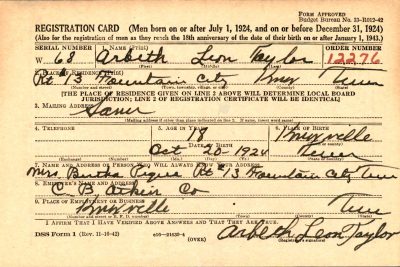 FORM APPROVED
Budget Bureau No. 33-R012-42
REGISTRATION CARD (Men born on or after July 1, 1924, and on or before December 31, 1924)
(Also for the registration of men as they reach the 18th anniversary of the date of their birth on or after January 1, 1943.)
SERIAL NUMBER 1. NAME (Print) ORDER NUMBER
W 68 Arbeth Leon Taylor 12276
2. PLACE OF RESIDENCE (Print)
Rt #13 Mountain City Knox Tenn
(Number and street) (Town, township, village, or city) (County) (State)
[THE PLACE OF RESIDENCE GIVEN ON LINE 2 ABOVE WILL DETERMINE LOCAL BOARD
JURISDICTION; LINE 2 OF REGISTRATION CERTIFICATE WILL BE IDENTICAL]
3. MAILING ADDRESS
Same
(Mailing address if other than place indicated on line 2. If same, insert word same)
4. TELEPHONE 5. AGE IN YEARS 6. PLACE OF BIRTH
Knoxville
DATE OF BIRTH (Town or county)
Oct 20 1924 Tenn
(Exchange) (Number) (Mo.) (Day) (Yr.) (State or country)
7. NAME AND ADDRESS OF PERSON WHO WILL ALWAYS KNOW YOUR ADDRESS
Mrs. Bertha Rt #13 Mountain City Tenn
8. EMPLOYER'S NAME AND ADDRESS
C. B. Atkin Co
9. PLACE OF EMPLOYMENT OR BUSINESS
Knoxville Tenn
(Number and street or R. F. D. number) (Town) (County) (State)
I AFFIRM THAT I HAVE VERIFIED ABOVE ANSWERS AND THAT THEY ARE TRUE.
DSS Form 1 (Rev. 11-16-42) (OVER) Arbeth Leon Taylor
(Registrant's signature)